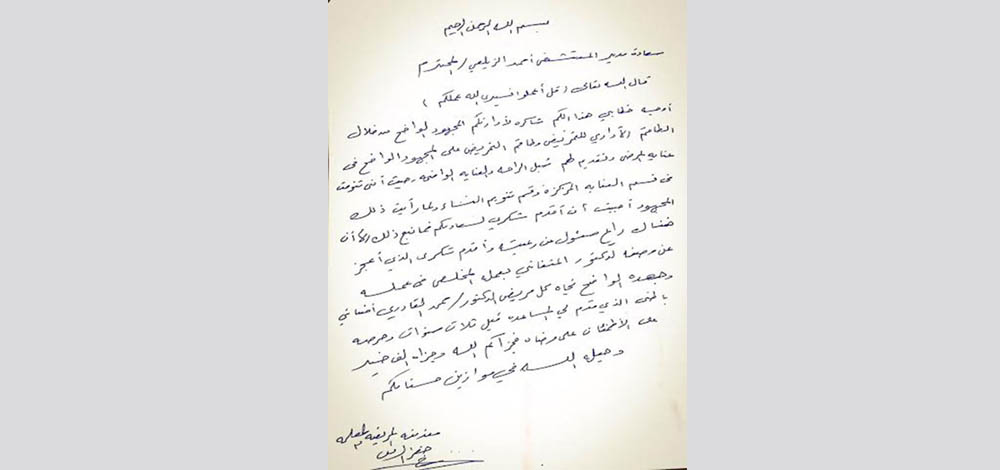 بسم الله الرحمن الرحيم
سعادة مدير المستشفى أحمد الزيلعي / المحترم
قال الله تعالى (قل أعملوا فسيرى الله عملكم)
أوجه خطابي هذا الكم شاكره لأدارتكم المجهود الواضح من خلال
الطاقم الأداري للتمريض وطاقم التمريض على المجهود الواضح في
عنايه المرضى وتقديم لهم سبل الراحه والعنايه الواضحه وحيث أنني تنومت
في قسم العنايه المركزه وقسم تنويم النساء ولما رأيت ذلك
المجهود أحببت أن أقدم شكري لسعادتكم فما نبع ذلك إلا أن
هناك راعٍ مسئول عن رعيته وأقدم شكري الذي أعجز
عن وصفه لدكتور المتفاني بعمله المخلص في عمله
وجهده الواضح تجاه كل مريض الدكتور / القادري أخصائي
باطني الذي قدم لي المساعده قبل ثلاث سنوات وحرصه
على الأطمئنان على مرضاه فجزاكم الله وجزاه الف خير
وجعله الله في موازين حسناتكم
مقدمته المريضه